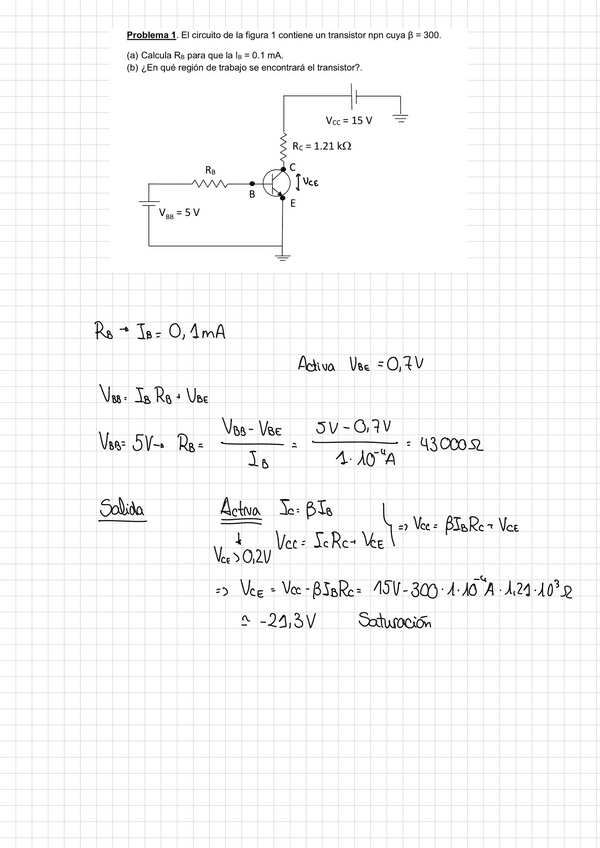 Problema 1. El circuito de la figura 1 contiene un transistor npn cuya β = 300.
(a) Calcula R_B para que la I_B = 0.1 mA.
(b) ¿En qué región de trabajo se encontrará el transistor?.
V_CC = 15 V
R_C = 1.21 kΩ
R_B
C
V_CE
B
E
V_BB = 5 V
R_B → I_B = 0,1mA
Activa V_BE = 0,7V
V_BB = I_B R_B + V_BE
V_BB = 5V → R_B = (V_BB - V_BE) / I_B = (5V - 0,7V) / (1·10^-4 A) = 43000Ω
Salida Activa I_C = βI_B
V_CE > 0,2V V_CC = I_C R_C + V_CE => V_CC = βI_B R_C + V_CE
=> V_CE = V_CC - βI_B R_C = 15V - 300·1·10^-4 A·1,21·10^3 Ω
≃ -21,3V Saturación